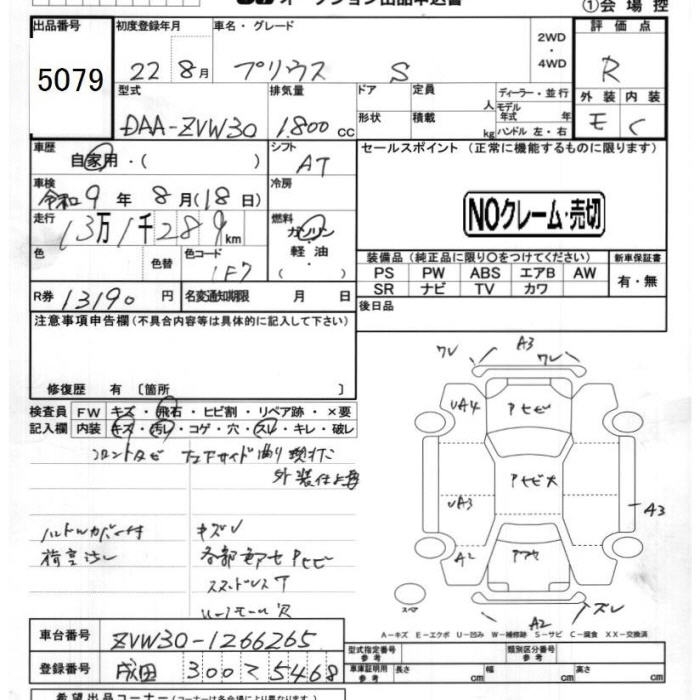 オークション出品申込書
①会場控
出品番号 5079
初度登録年月 22 8月
車名・グレード プリウス S
2WD・4WD
評価点 R
型式 DAA-ZVW30
排気量 1,800 cc
ドア
定員 人
ディーラー・並行
形状
積載 kg
モデル年式 年
ハンドル 左・右
外装 E
内装 C
車歴 自家用・( )
シフト AT
セールスポイント (正常に機能するものに限ります)
NOクレーム・売切
車検 令和9年8月(18日)
冷房
走行 13万1千289km
燃料 ガソリン 軽油 ・( )
色
色替
色コード 1F7
装備品 (純正品に限り〇をつけてください)
PS PW ABS エアB AW
SR ナビ TV カワ
新車保証書 有・無
R券 13190 円
名変通知期限 月 日
後日品
注意事項申告欄 (不具合内容等は具体的に記入して下さい)
修復歴 有 〔箇所 〕
検査員記入欄
FW キズ・飛石・ヒビ割・リペア跡・×要
内装 キズ・汚レ・コゲ・穴・スレ・キレ・破レ
外装仕上要
ハンドルカバー付
荷室汚レ
キズU
スタッドレスT
A3
ワレ ワレ
UA4
Pセビ
Pセビ大
UA3
A3
A2
スペア
A2
ズレ
A-キズ E-エクボ U-凹み W-補修跡 S-サビ C-腐食 XX-交換済
車台番号 ZVW30-1266265
登録番号 成田 300 て 5468
型式指定番号 参考
類別区分番号 参考
車検証明用 参考
長さ cm
幅 cm
高さ cm
希望出品コーナー (コーナーは各会場により異なります)